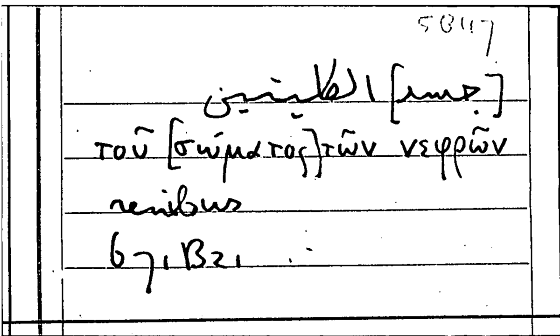 5847
[جسد] الكليتين
τοῦ [σώματος] τῶν νεφρῶν
renibus
671B21